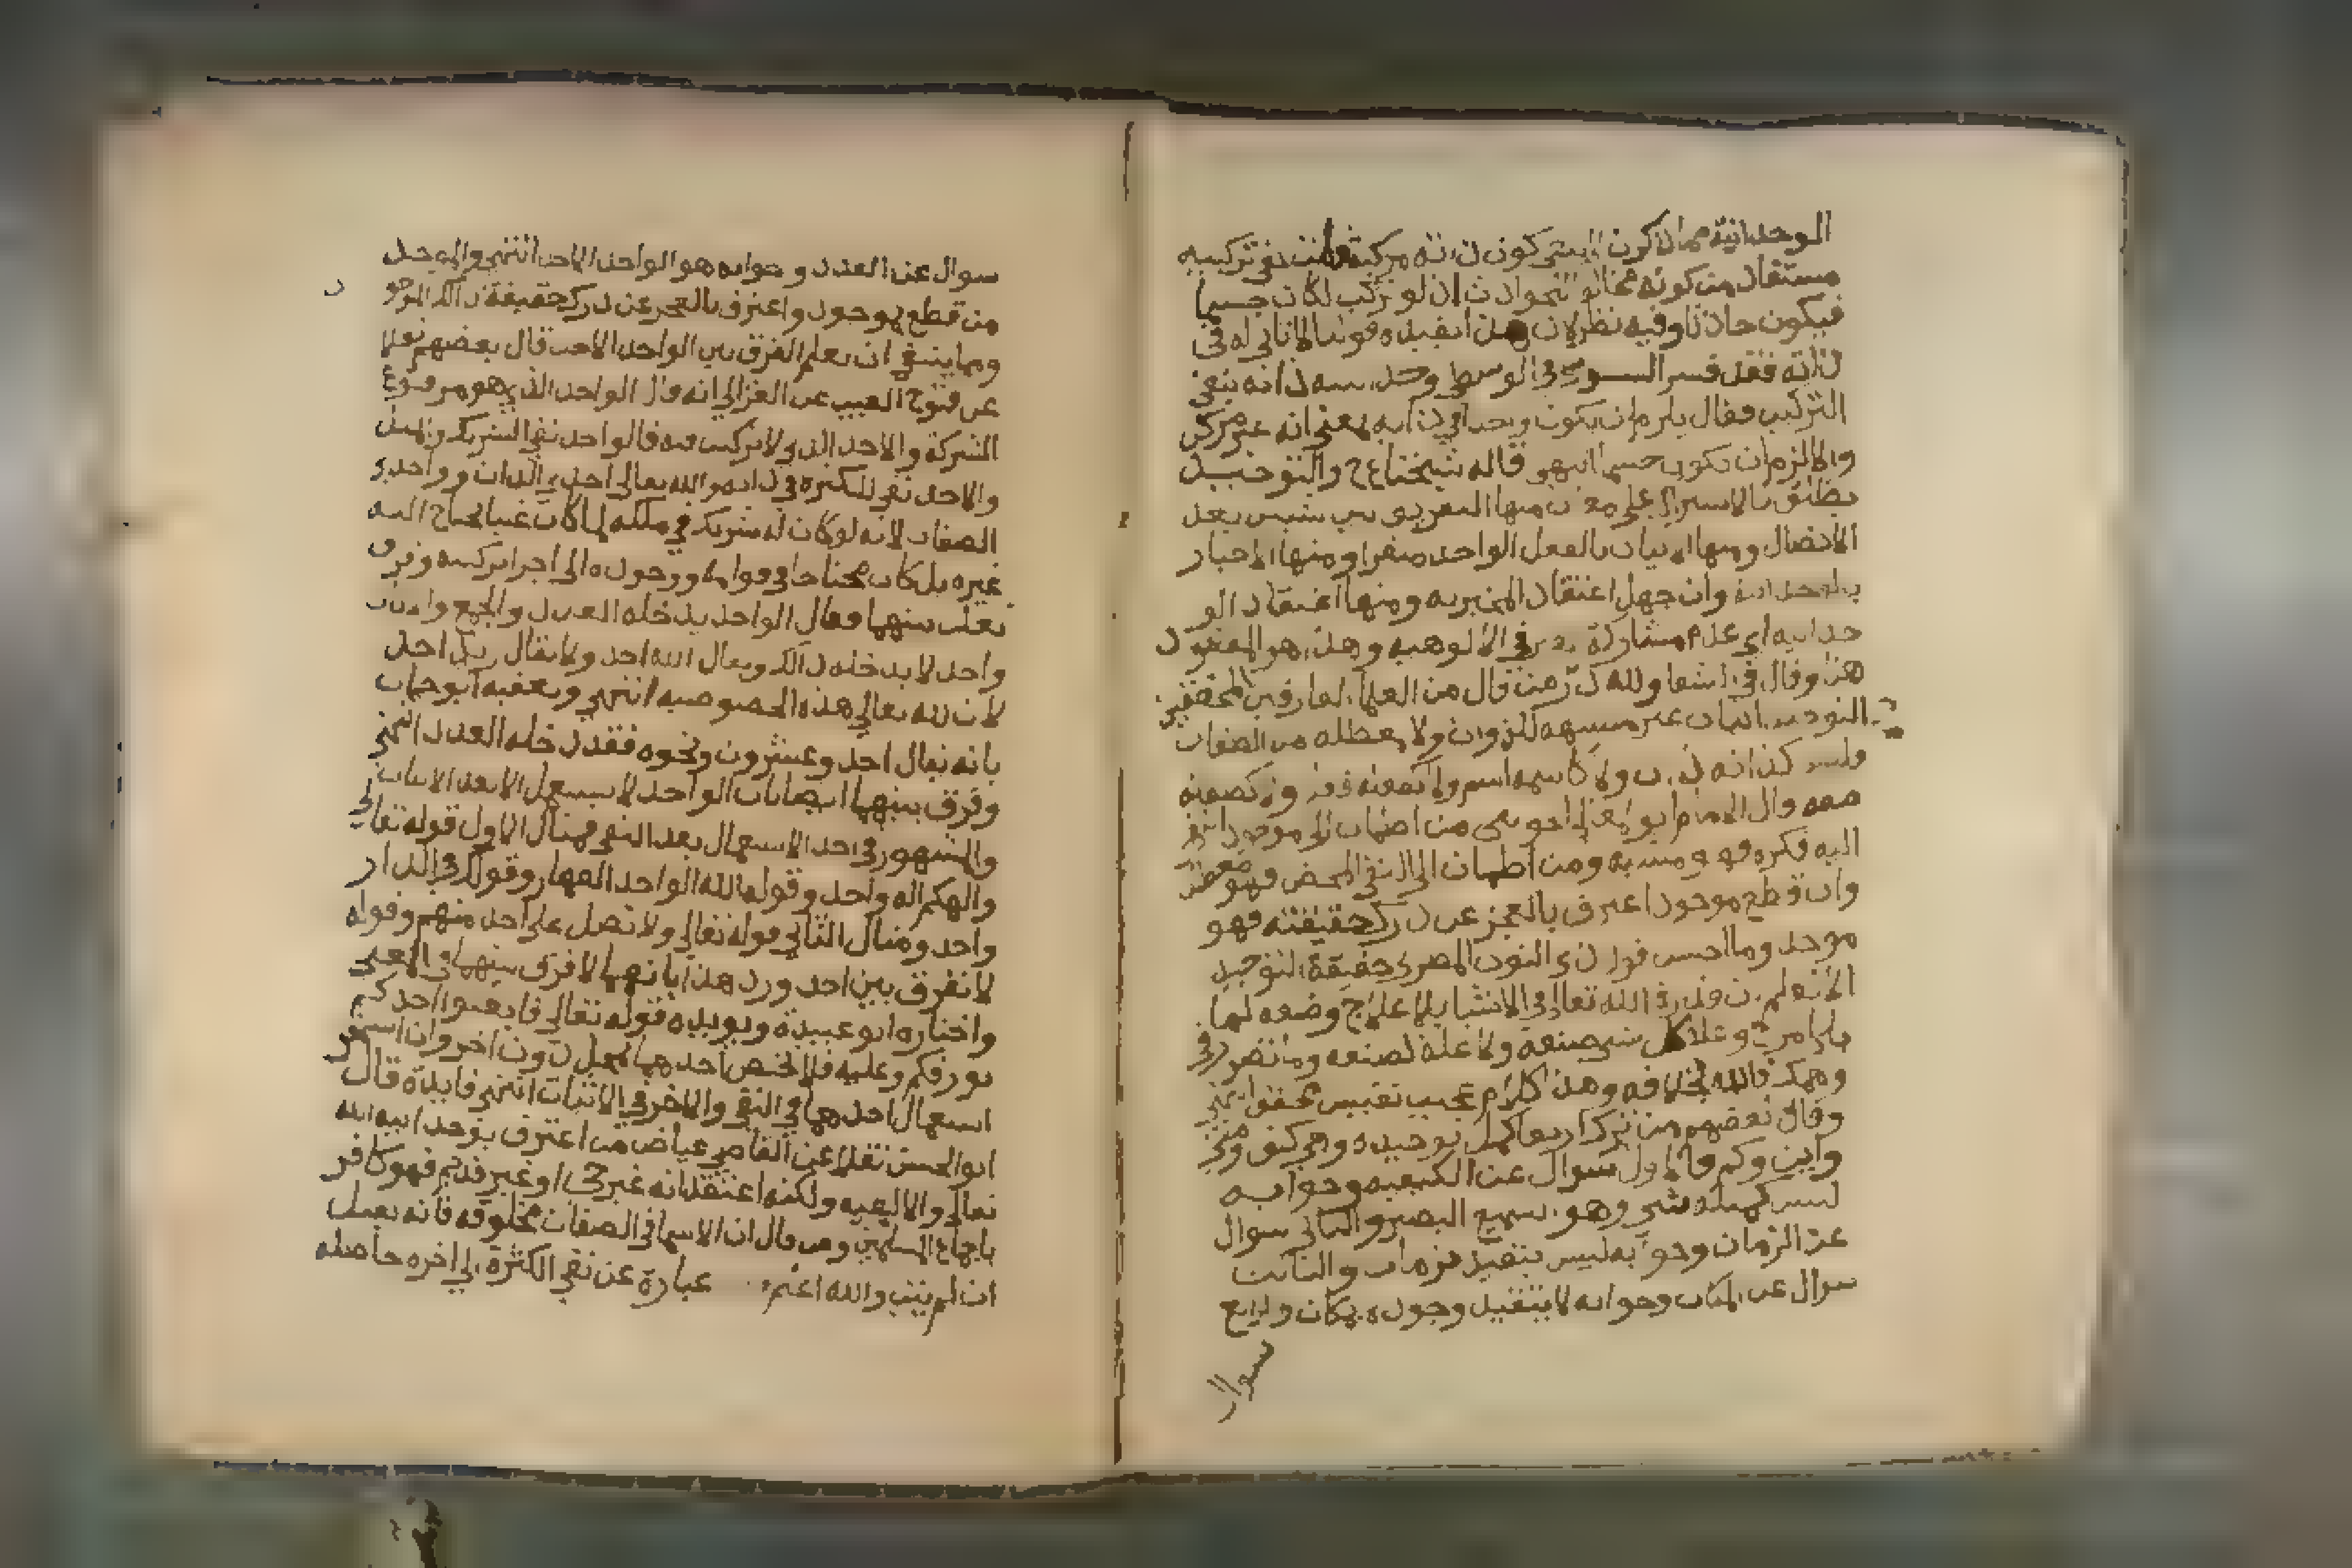 الوحدانية مما لا يكون ذاته مركبة فان نفي تركيبه
مستفاد من كونه مخالفا للحوادث اذ لو تركب لكان جسما
فيكون حادثا وفيه نظر لان هذا يفيده قولنا لا ثاني له في
ذاته فقد فسر السنوسي في الوسطي وحد انه ينفي
التركيب فقال يلزم ان يكون واحدا في ذاته بمعنى انه غير مركب
والا لزم ان يكون جسما انتهى قاله شيخنا ع ج والتوحيد
يطلق بالاشتراك على معان منها التفريق بين شيين بعد
الاتصال ومنها الاتيان بالفعل الواحد منفردا ومنها الاخبار
بالوحدانية وان جهل اعتقاد المخبر به ومنها اعتقاد الو
حدانية اي عدم مشاركة في الالوهية وهذا هو المقصود
هذا وقال في الشفا ولله در من قال من العلما العارفين المحققين
التوحيد اثبات غير مشبهة للذوات ولا معطلة من الصفات
وليس كذاته ذات ولا كاسمه اسم ولا كفعله فعل ولا كصفته
صفه وقال الامام ابو المعالي الجويني من اطمان الى موجود انتهى
اليه فكره فهو مشبه ومن اطمان الى النفي المحض فهو معطل
وان قطع بموجود اعترف بالعجز عن درك حقيقته فهو
موحد وما احسن قول ذي النون المصري حقيقة التوحيد
ان تعلم ان قدرة الله تعالى في الاشيا بلا علاج وضعه لها
بلا مزاج وعلة كل شي صنعه ولا علة لصنعه وما تصور في
وهمك فالله بخلافه وهذا كلام عجيب نفيس محقق انتهى
وقال بعضهم من ترك اربعا كمل توحيده وهي كيف ومتى
واين وكم فالاول سوال عن الكيفيه وجوابه
ليس كمثله شي وهو السميع البصير والثاني سوال
عن الزمان وجوابه ليس يتقيد بزمان والثالث
سوال عن المكان وجوابه لا يتقيد وجوده بمكان والرابع
سوال
سوال عن العدد وجوابه هو الواحد الاحد انتهى والموحد
من قطع بوجود واعترف بالعجز عن درك حقيقة ذلك الموجو
د
ومما ينبغي ان يعلم الفرق بين الواحد الاحد قال بعضهم نقلا
عن فتوح الغيب عن الغزالي انه قال الواحد الذي هو مرفوع
الشركة والاحد الذي لا تركيب فيه فالواحد نفي الشريك والمثل
والاحد نفي للكثرة في ذاته والله تعالى احدي الذات وواحدي
الصفات لانه لو كان له شريك في ملكه لما كان غنيا يحتاج اليه
غيره بل كان محتاجا في قوامه ووجوده الى اجزا تركيبه وفرق
ثعلب بينهما فقال الواحد يدخله العدد والجمع والاثنان
واحد لا يدخله ذلك ويقال الله احد ولا يقال زيد احد
لان لله تعالى هذه الخصوصيه انتهى وتعقبه ابو حيان
بانه يقال احد وعشرون ونحوه فقد دخله العدد انتهى
وفرق بينهما ايضا بان الواحد لا يستعمل الا بعد الاثبات
والمشهور في احد الاستعمال بعد النفي فمثال الاول قوله تعالى
والهكم اله واحد وقوله الله الواحد القهار وقولك في الدار
واحد ومثال الثاني قوله تعالى ولا تصل على احد منهم وقوله
لا نفرق بين احد ورد هذا بانهما لا فرق بينهما في المعنى
واختاره ابو عبيدة ويويده قوله تعالى فابعثوا احدكم
بورقكم وعليه فلا يختص احدهما بمحل دون اخر وان اشتهر
استعمال احدهما في النفي والاخر في الاثبات انتهى فايدة قال
ابو الحسن نقلا عن القاضي عياض من اعترف بوحدانيه الله
تعالى والالهيه ولكنه اعتقد انه غير حي او غير قديم فهو كافر
باجماع المسلمين ومن قال ان الاسما والصفات مخلوقه فانه يقتل
ان لم يتب والله اعلم عبارة عن نفي الكثرة الى اخره حاصله